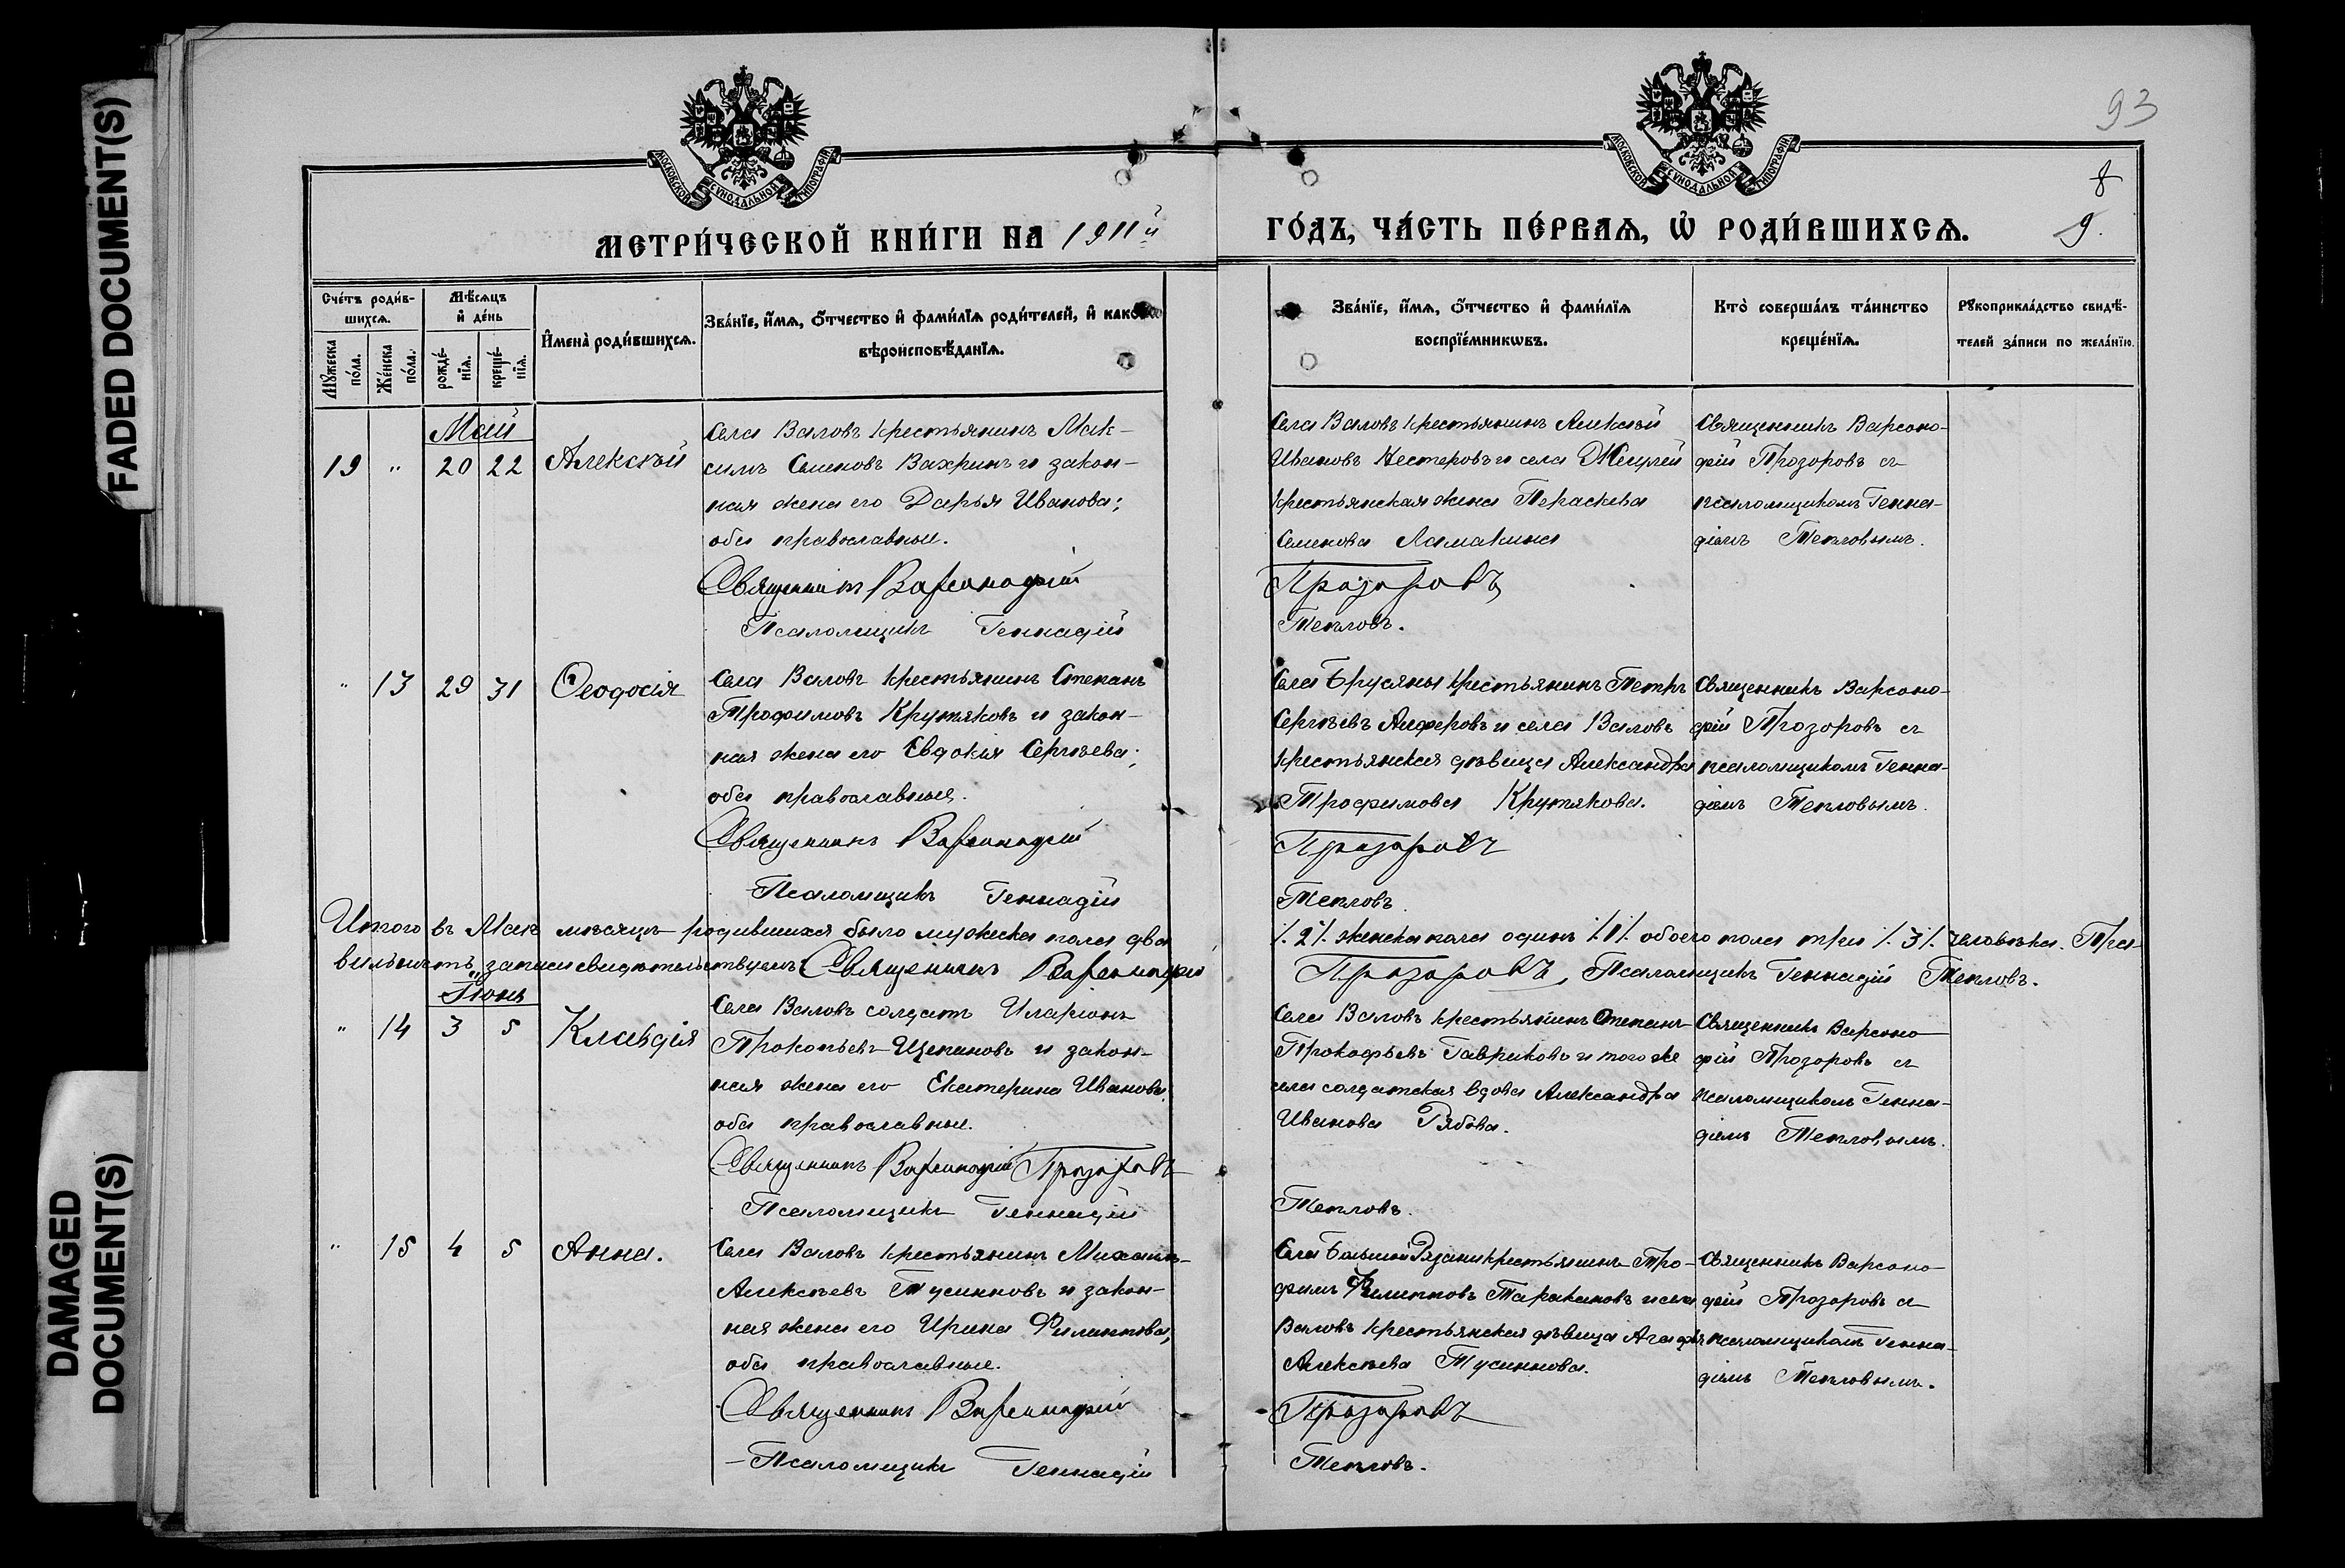 FADED DOCUMENT(S)
DAMAGED
DOCUMENT(S)
МОСКОВСКОЙ СѴНОДАЛЬНОЙ ТИПОГРАФІИ
МОСКОВСКОЙ СѴНОДАЛЬНОЙ ТИПОГРАФІИ
93
8
9.
МЕТРИ́ЧЕСКОЙ КНИ́ГИ НА 1911й
ГО́ДЪ, ЧА́СТЬ ПЕ́РВАѦ, Ѡ҆ РОДИ́ВШИХСѦ.
Счетъ роди́в-
шихсѧ.
Мꙋжеска по́ла.
Же́нска по́ла.
Мѣ́сѧцъ
и҆ де́нь
рожде́-
нїѧ.
креще́-
нїѧ.
И҆мена̀ роди́вшихсѧ.
Зва́нїе, и҆́мѧ, ѻ҆́тчество и҆ фами́лїѧ роди́телей, и҆ како́
вѣроисповѣ́данїѧ.
Зва́нїе, и҆́мѧ, ѻ҆́тчество и҆ фами́лїѧ
воспрїе́мникѡвъ.
Кто̀ соверша́лъ та́инство
креще́нїѧ.
Рꙋкоприкла́дство свидѣ́-
телей за́писи по жела́нїю.
Май
19 " 20 22 Алексѣй
Села Валовъ крестьянинъ Мак-
симъ Семеновъ Вахринъ и закон-
ная жена его Дарья Иванова;
оба православные.
Священникъ Варсонофій
Псаломщикъ Геннадій
Села Валовъ крестьянинъ Алексѣй
Ивановъ Нестеровъ и села Жигулей
крестьянская жена Параскева
Семенова Ламакина
Прозоровъ
Тепловъ.
Священникъ Варсоно-
фій Прозоровъ съ
псаломщикомъ Генна-
діемъ Тепловымъ.
" 13 29 31 Ѳеодосія
Села Валовъ крестьянинъ Степанъ
Трофимовъ Крутяковъ и закон-
ная жена его Евдокія Сергѣева;
оба православные.
Священникъ Варсонофій
Псаломщикъ Геннадій
Села Брусяны крестьянинъ Петръ
Сергѣевъ Алферовъ и села Валовъ
крестьянская дѣвица Александра
Трофимова Крутякова.
Прозоровъ
Тепловъ.
Священникъ Варсоно-
фій Прозоровъ съ
псаломщикомъ Генна-
діемъ Тепловымъ.
Итого въ Маѣ мѣсяцѣ родившихся было мужеска пола два
·/. 2 ·/. женска пола одинъ ·/. 1 ·/. обоего пола три ·/. 3 ·/. человѣка. Пра-
вильность записи свидѣтельствуемъ: Священникъ Варсонофій
Прозоровъ, Псаломщикъ Геннадій Тепловъ.
Іюнь
" 14 3 5 Клавдія
Села Валовъ солдатъ Иларіонъ
Прокопьевъ Щепиновъ и закон-
ная жена его Екатерина Иванова;
оба православные.
Священникъ Варсонофій Прозоровъ
Псаломщикъ Геннадій
Села Валовъ крестьянинъ Степанъ
Прокофьевъ Гавриковъ и того же
села солдатская вдова Александра
Иванова Рябова.
Тепловъ.
Священникъ Варсоно-
фій Прозоровъ съ
псаломщикомъ Генна-
діемъ Тепловымъ.
" 15 4 5 Анна.
Села Валовъ крестьянинъ Михаилъ
Алексѣевъ Тусинновъ и закон-
ная жена его Ирина Филиппова;
оба православные.
Священникъ Варсонофій
Псаломщикъ Геннадій
Села Большой Рязани крестьянинъ Тро-
фимъ Филипповъ Таракановъ и села
Валовъ крестьянская дѣвица Агафья
Алексѣева Тусиннова.
Прозоровъ
Тепловъ.
Священникъ Варсоно-
фій Прозоровъ съ
псаломщикомъ Генна-
діемъ Тепловымъ.